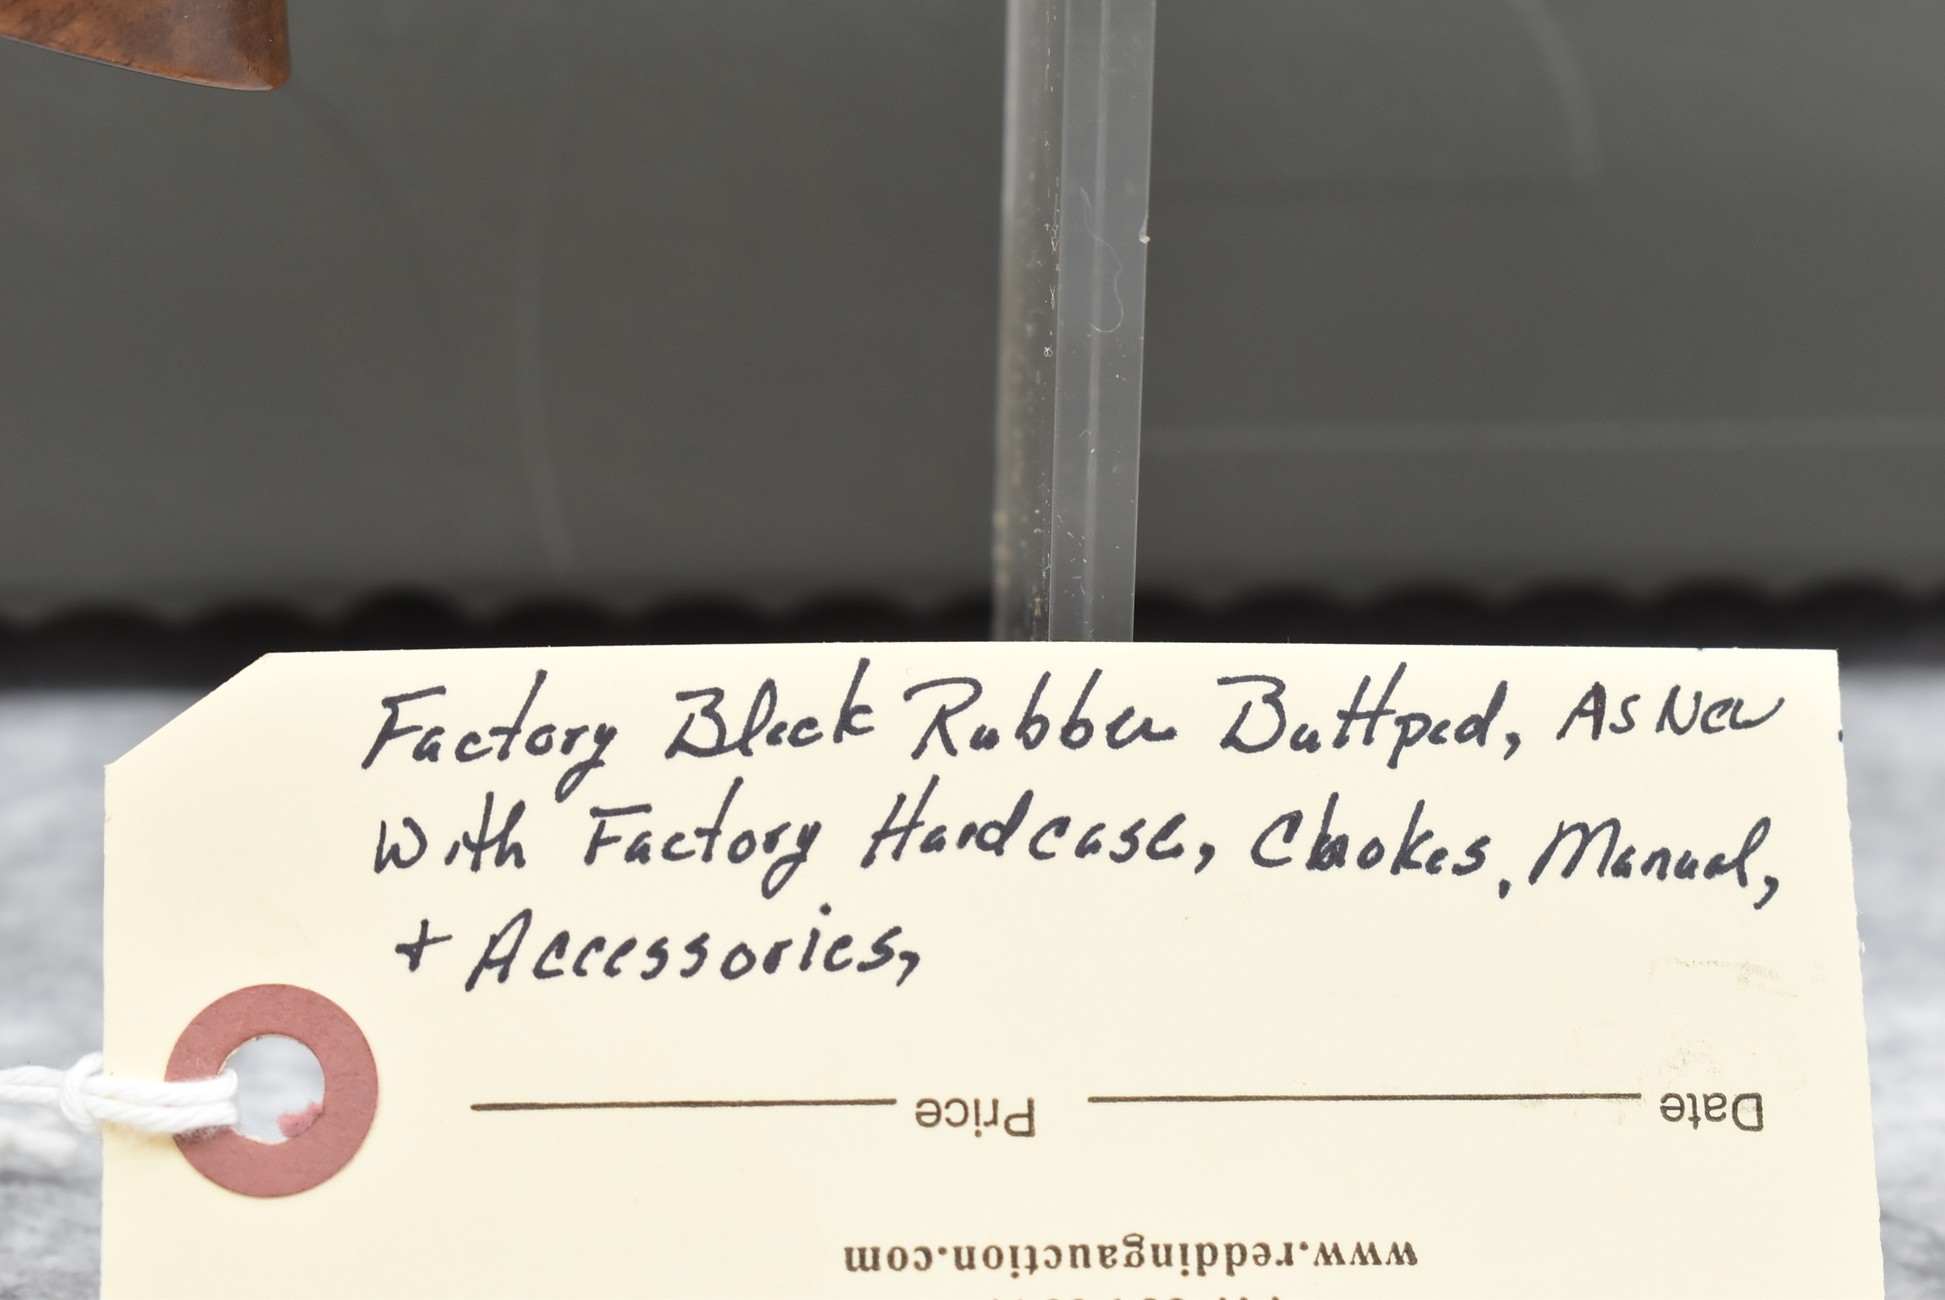 Factory Black Rubber Buttpad, As New
With Factory Hardcase, Chokes, Manual,
+ Accessories,
Price Date
www.reddingauction.com